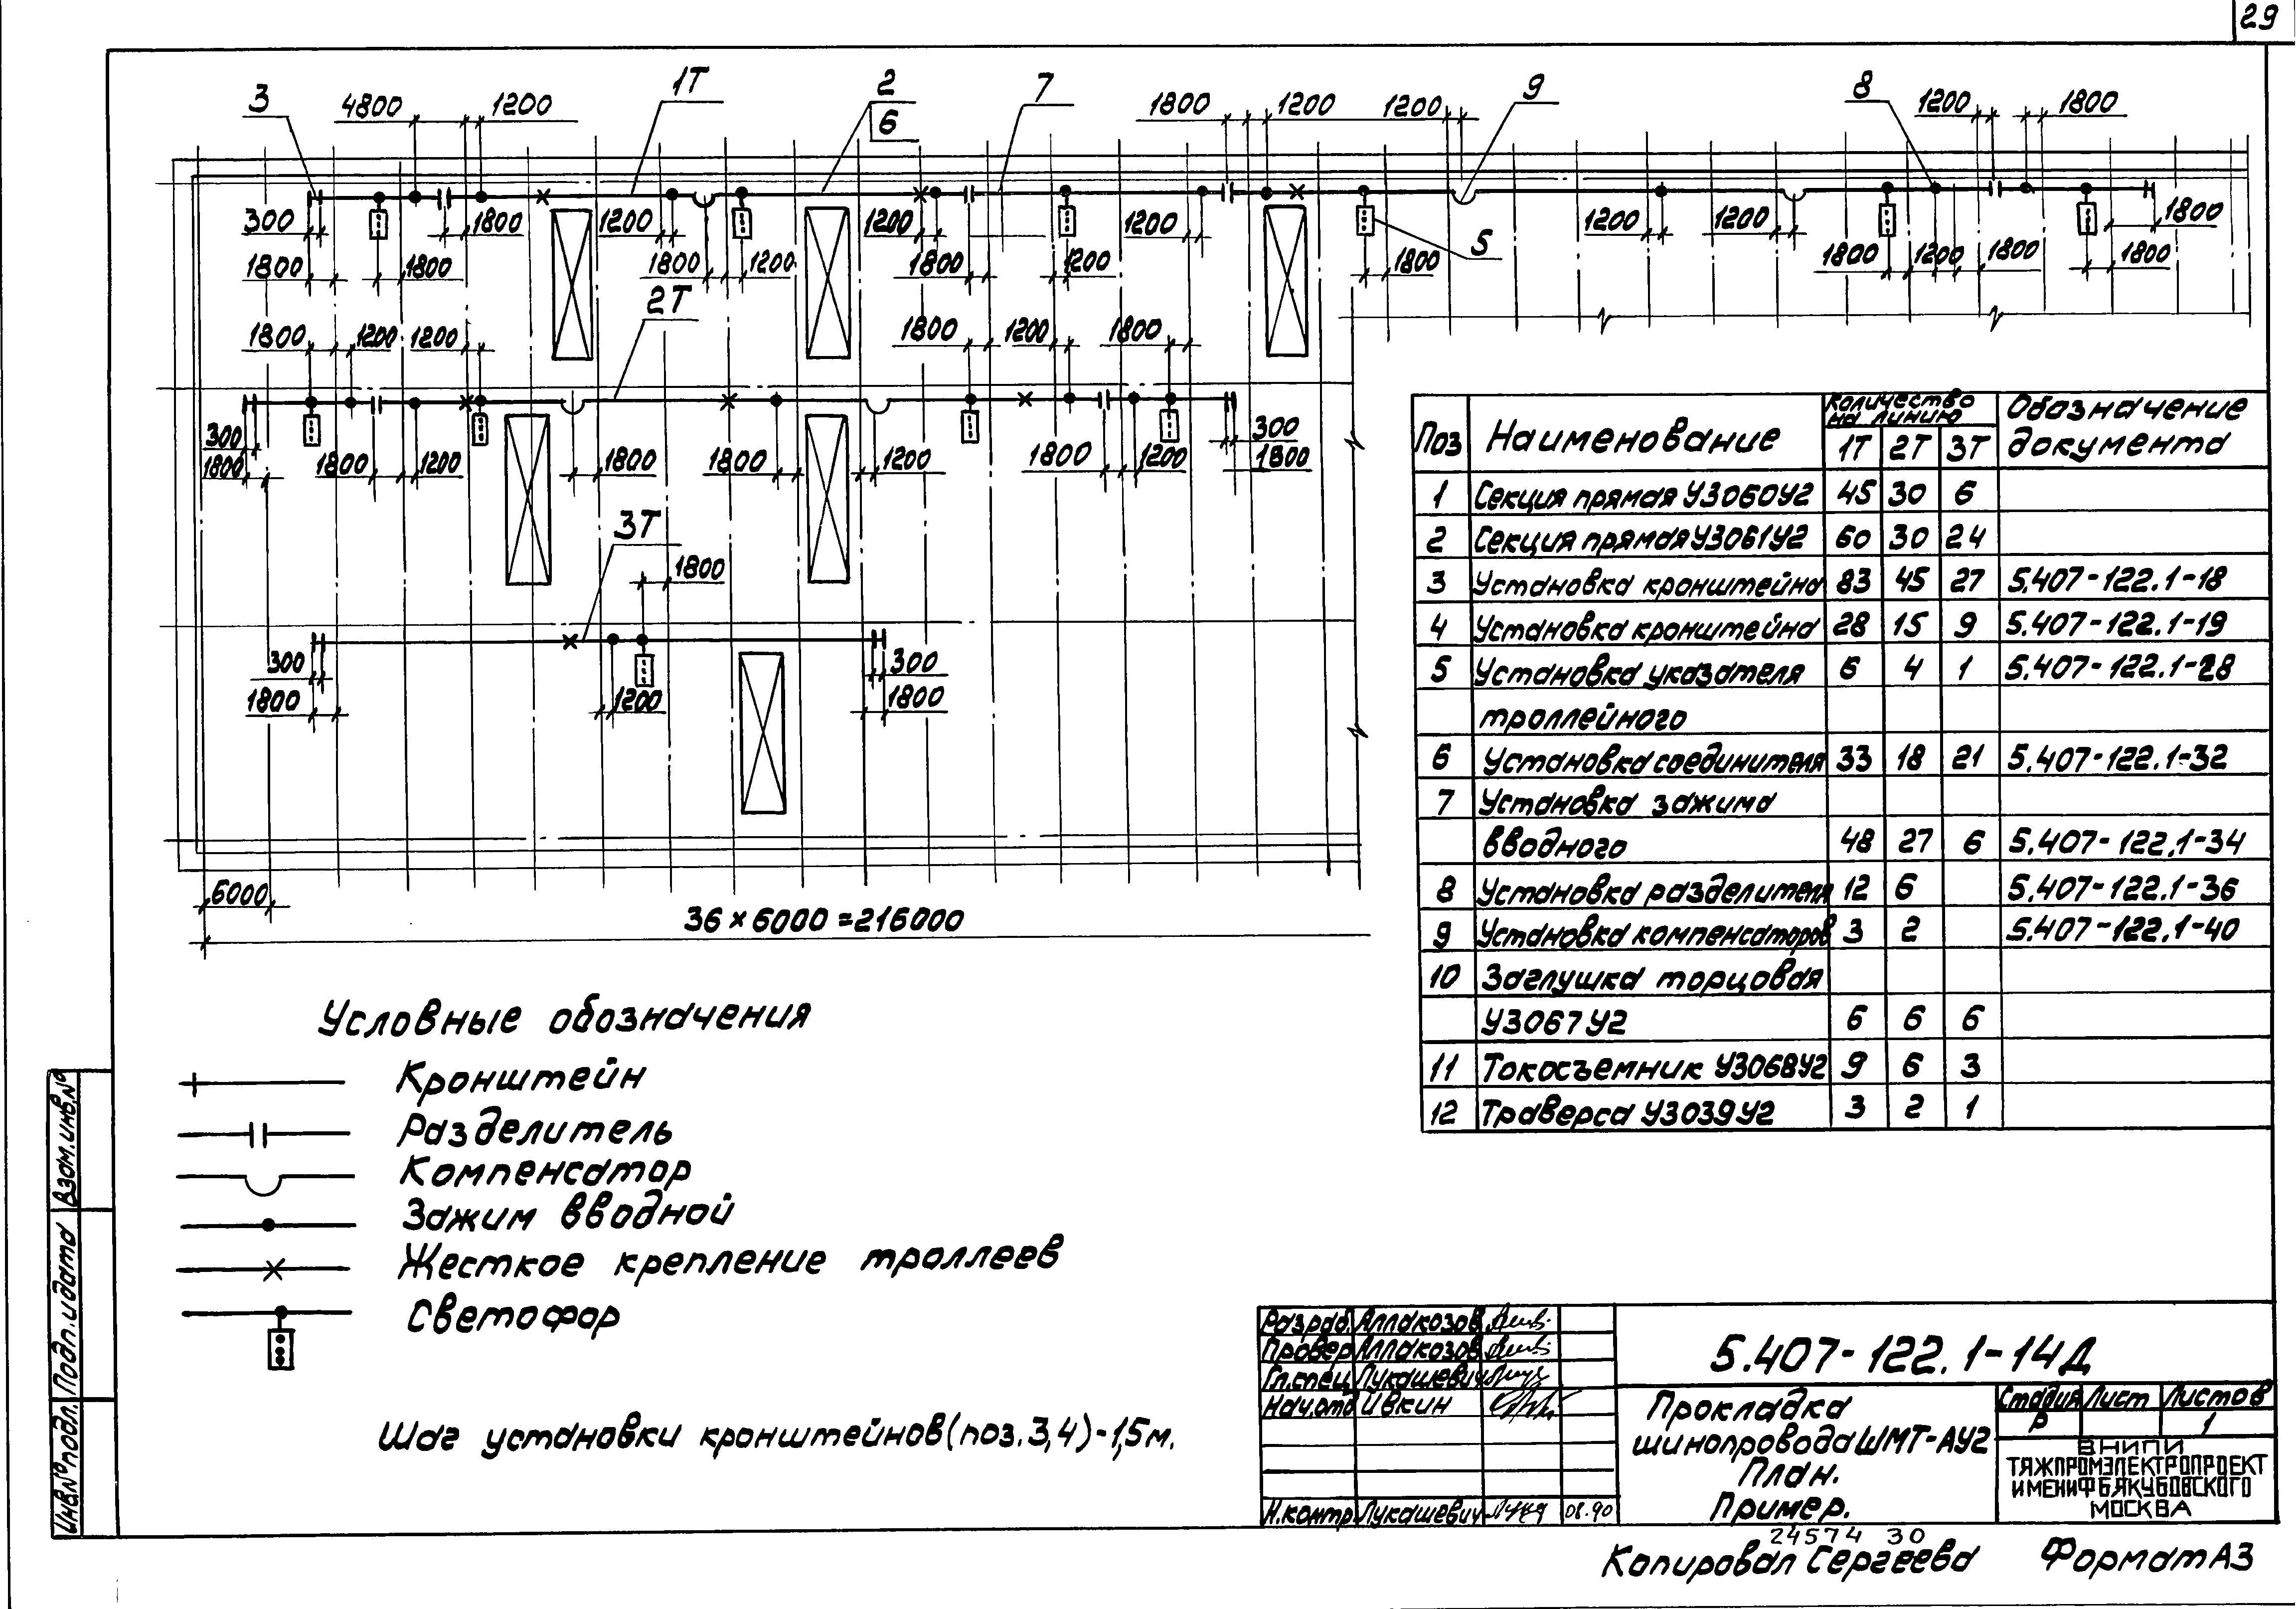 29
3 4800 1200 1Т 2 7 1800 1200 1200 9 8 1200 1800
6
300 1800 1200 1200 1200 5 1200 1200 1800
1800 1800 1800 1200 1800 1200 1800 1800 1200 1800 1800
2Т
1800 1200 1200 1800 1200 1800
300 300
1800 1800 1200 1800 1800 1200 1800 1200 1800
3Т
1800
300 300
1800 1200 1800
6000
36 × 6000 = 216000
Поз Наименование Количество на линию Обозначение документа
1Т 2Т 3Т
1 Секция прямая У3060У2 45 30 6
2 Секция прямая У3061У2 60 30 24
3 Установка кронштейна 83 45 27 5.407-122.1-18
4 Установка кронштейна 28 15 9 5.407-122.1-19
5 Установка указателя 6 4 1 5.407-122.1-28
троллейного
6 Установка соединителя 33 18 21 5.407-122.1-32
7 Установка зажима
вводного 48 27 6 5.407-122.1-34
8 Установка разделителя 12 6 5.407-122.1-36
9 Установка компенсаторов 3 2 5.407-122.1-40
10 Заглушка торцовая
У3067У2 6 6 6
11 Токосъемник У3068У2 9 6 3
12 Траверса У3039У2 3 2 1
Условные обозначения
Кронштейн
Разделитель
Компенсатор
Зажим вводной
Жесткое крепление троллеев
Светофор
Шаг установки кронштейнов (поз. 3,4) - 1,5 м.
Взам. инв. №
Подп. и дата
Инв. № подл.
Разраб. Аллакозов
Провер Аллакозов
Гл. спец. Лукашевич
Нач. отд Ивкин
Н. контр. Лукашевич 08.90
5.407-122.1-14Д
Прокладка
шинопровода ШМТ-АУ2
План.
Пример.
Стадия Лист Листов
Р 1
ВНИПИ
ТЯЖПРОМЭЛЕКТРОПРОЕКТ
ИМЕНИ Ф.Б.ЯКУБОВСКОГО
МОСКВА
24574 30
Копировал Сергеева Формат А3